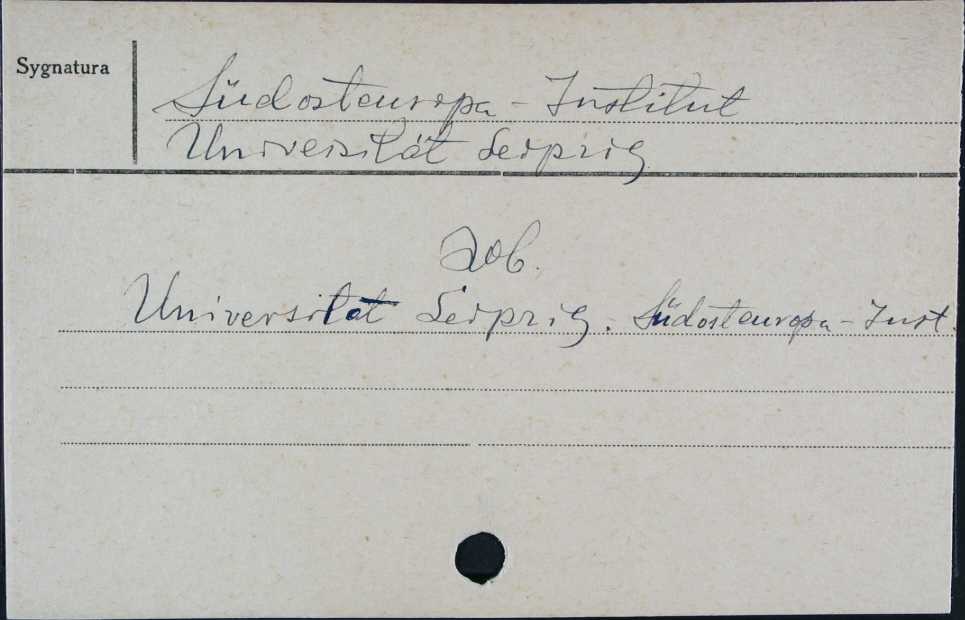 Sygnatura
Südosteuropa - Institut
Universität Leipzig
zob.
Universität Leipzig. Südosteuropa - Inst.